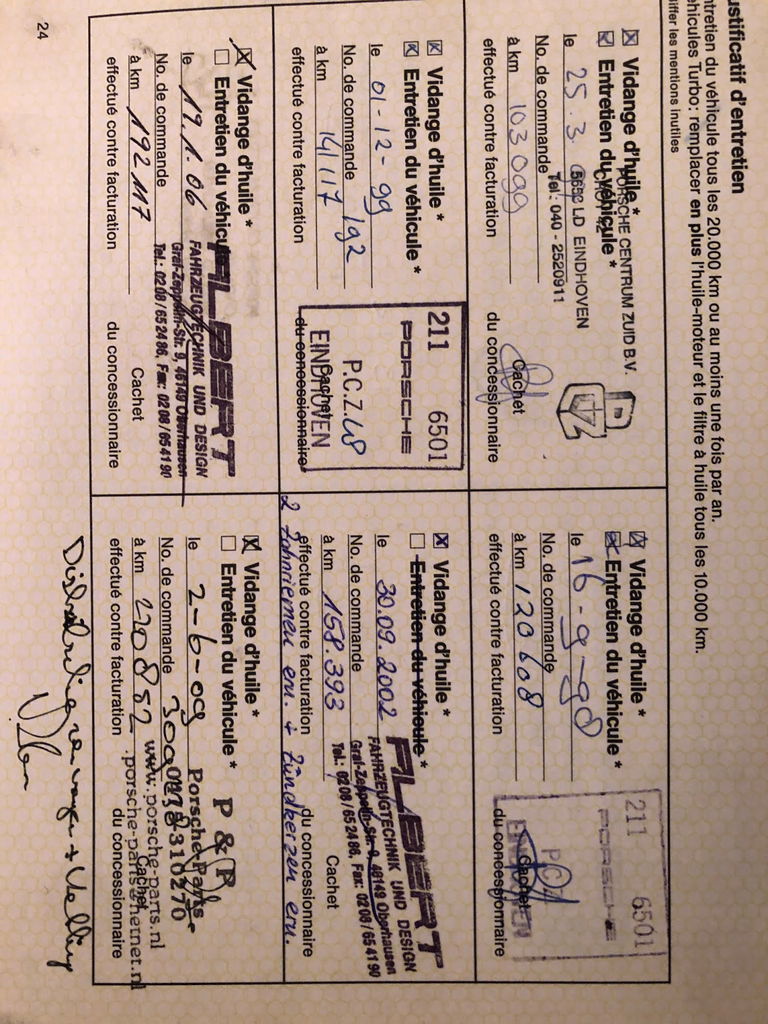 ustificatif d'entretien
ntretien du véhicule tous les 20.000 km ou au moins une fois par an.
éhicules Turbo: remplacer en plus l'huile-moteur et le filtre à huile tous les 10.000 km.
iffer les mentions inutiles
Vidange d'huile *
Entretien du véhicule *
PORSCHE CENTRUM ZUID B.V.
5652 LD EINDHOVEN
Tel.: 040 - 2520911
le 25.3.
No. de commande
à km 103099
Cachet
effectué contre facturation du concessionnaire
Vidange d'huile *
Entretien du véhicule *
le 16-9-98
No. de commande
à km 120608
effectué contre facturation
211 6501
PORSCHE
EINDHOVEN
Cachet
du concessionnaire
Vidange d'huile *
Entretien du véhicule *
le 01-12-99
No. de commande 192
à km 141117
effectué contre facturation
211 6501
PORSCHE
P.C.Z. 48
EINDHOVEN
Cachet
du concessionnaire
Vidange d'huile *
Entretien du véhicule *
le 30.09.2002
No. de commande
à km 158.393
effectué contre facturation
ALBERT
FAHRZEUGTECHNIK UND DESIGN
Graf-Zeppelin-Str. 9, 46149 Oberhausen
Tel.: 02 08 / 65 24 86, Fax: 02 08 / 65 41 90
Cachet
du concessionnaire
2 Zahnriemen ern. + Zündkerzen ern.
Vidange d'huile *
Entretien du véhicule *
le 19.1.06
No. de commande
à km 192117
effectué contre facturation
ALBERT
FAHRZEUGTECHNIK UND DESIGN
Graf-Zeppelin-Str. 9, 46149 Oberhausen
Tel.: 02 08 / 65 24 86, Fax: 02 08 / 65 41 90
Cachet
du concessionnaire
Vidange d'huile *
Entretien du véhicule *
le 2-6-09
No. de commande
à km 220882
effectué contre facturation
P & P
Porsche-Parts
www.porsche-parts.nl
porsche-parts@hetnet.nl
Cachet
du concessionnaire
24